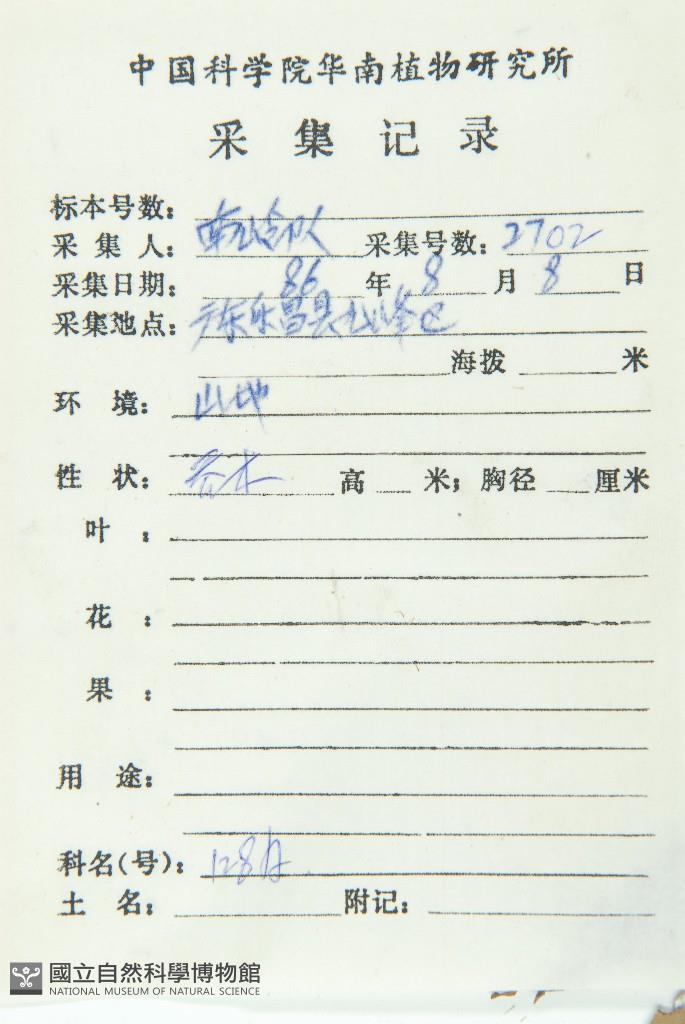 中国科学院华南植物研究所
采集记录
标本号数：
采集人： 南岭队 采集号数：2702
采集日期： 86 年 8 月 8 日
采集地点： 广东乐昌县
海拨 米
环境： 山地
性状： 乔木 高 米；胸径 厘米
叶：
花：
果：
用途：
科名(号)： 128A
土名： 附记：
國立自然科學博物館
NATIONAL MUSEUM OF NATURAL SCIENCE